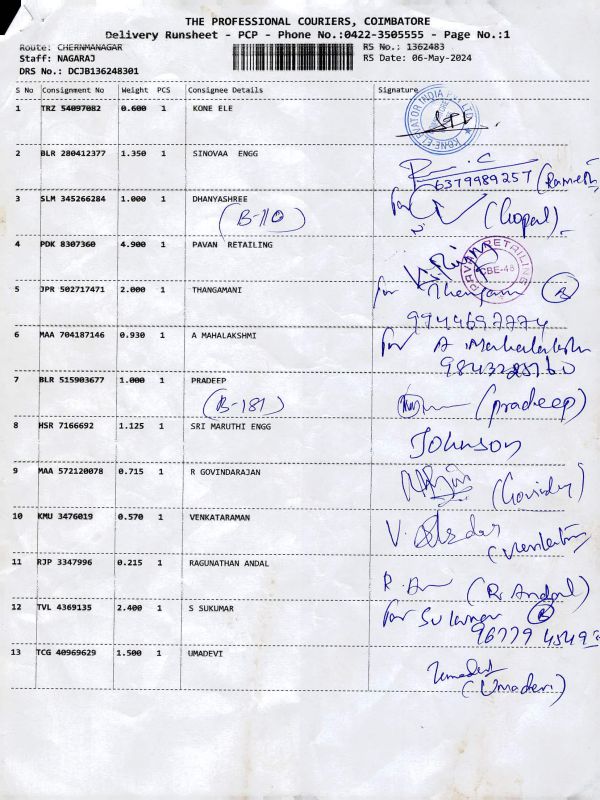 THE PROFESSIONAL COURIERS, COIMBATORE
Delivery Runsheet - PCP - Phone No.:0422-3505555 - Page No.:1
Route: CHERNMANAGAR RS No.: 1362483
Staff: NAGARAJ RS Date: 06-May-2024
DRS No.: DCJB136248301
S No Consignment No Weight PCS Consignee Details Signature
1 TRZ 54097082 0.600 1 KONE ELE
2 BLR 280412377 1.350 1 SINOVAA ENGG
6379989257 (Ramesh)
3 SLM 345266284 1.000 1 DHANYASHREE
(B-110) for (Gopal).
4 PDK 8307360 4.900 1 PAVAN RETAILING
PAVAN RETAILING CBE-46
5 JPR 502717471 2.000 1 THANGAMANI
for
6 MAA 704187146 0.930 1 A MAHALAKSHMI
for A. Mahalakshmi
7 BLR 515903677 1.000 1 PRADEEP
(B-181) (pradeep)
8 HSR 7166692 1.125 1 SRI MARUTHI ENGG
Johnson
9 MAA 572120078 0.715 1 R GOVINDARAJAN
10 KMU 3476019 0.570 1 VENKATARAMAN
11 RJP 3347996 0.215 1 RAGUNATHAN ANDAL
(R. Andal)
12 TVL 4369135 2.400 1 S SUKUMAR
for Sukumar
13 TCG 40969629 1.500 1 UMADEVI
(Umadevi)